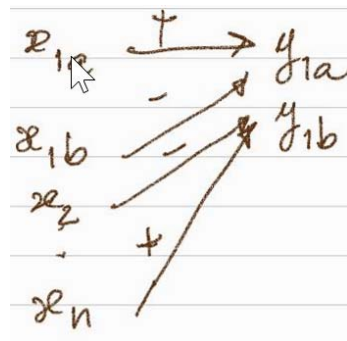 x1a + y1a
-
x1b - y1b
x2
.
+
xn